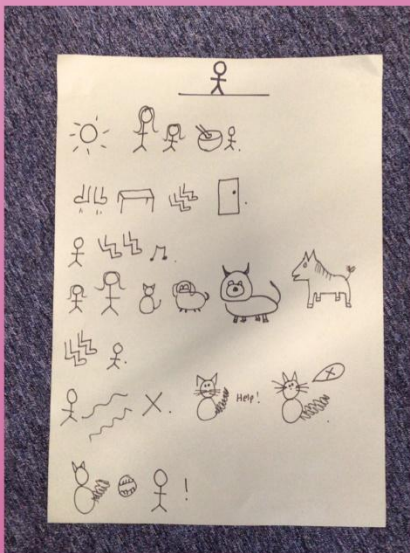 Help!
X
!